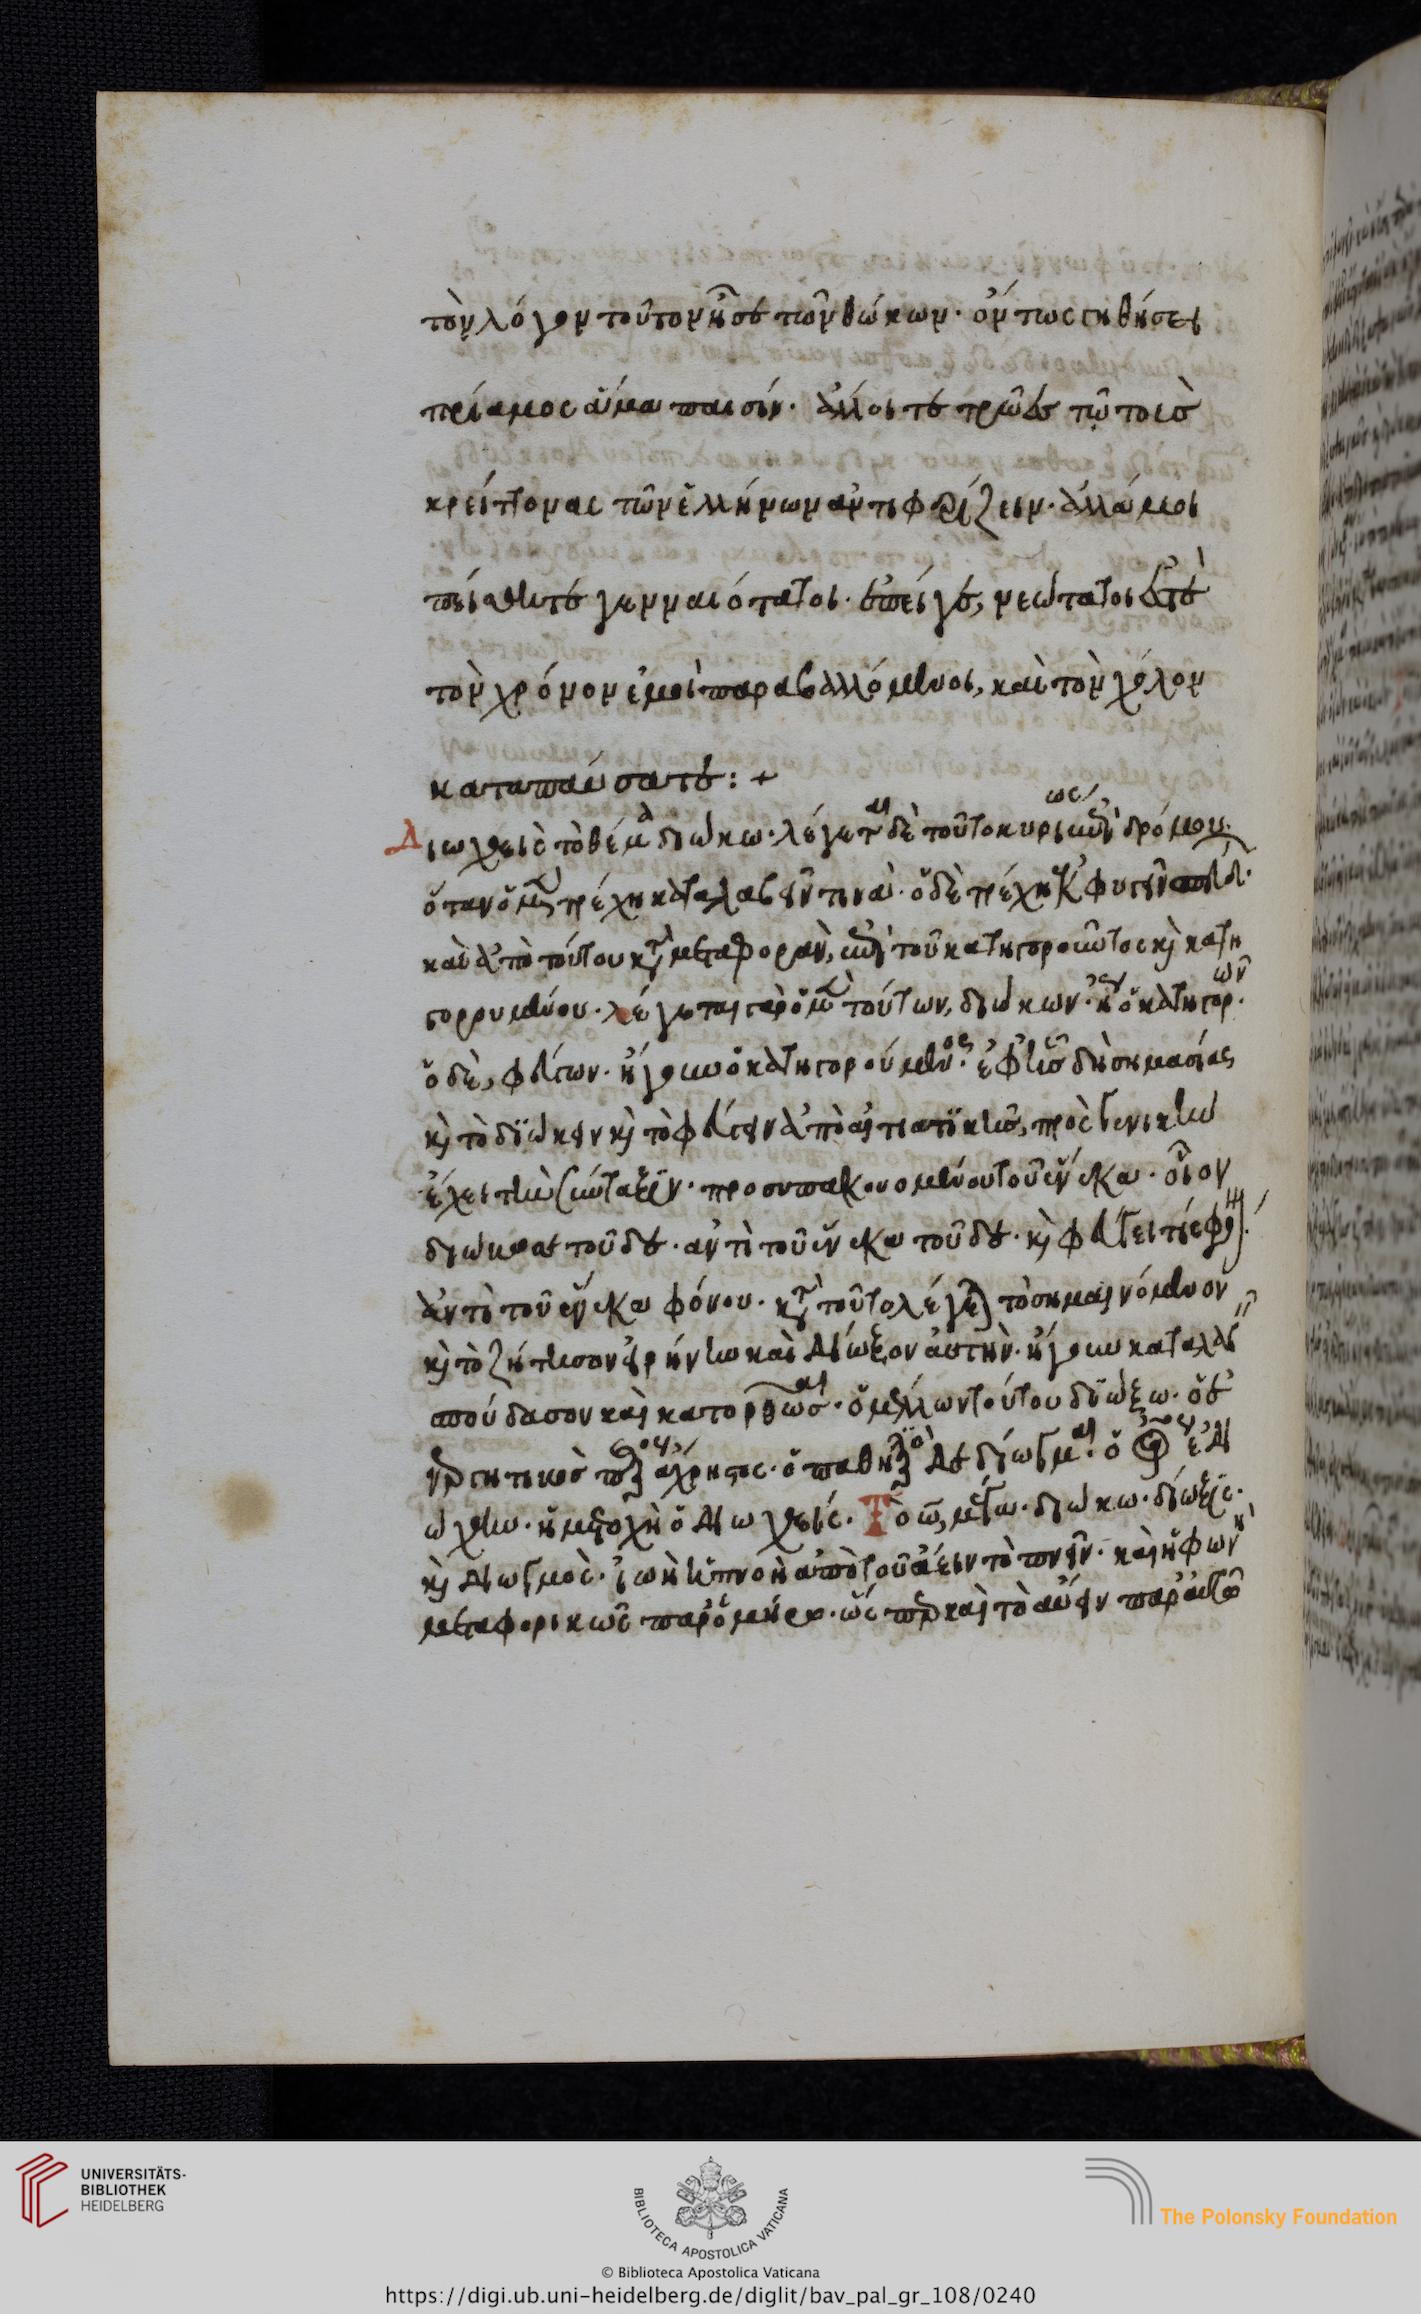 τὸν λόγον τοῦτον ἤσε τῶν θώκων· ὄντως γηθήσει
πρίαμος ἅμα παισίν· ἄλλοι τε τρῶες τῷ τοὺς
κρείττονας τῶν ἑλλήνων ἀντιφερίζειν· ἀλλά μοι
πείσθητε γενναιότατοι· ἐπείγε, νεώτατοι ἐστὲ
τὸν χρόνον ἐμοὶ παραβαλλόμενοι, καὶ τὸν χόλον
καταπαύσατε: +
Διωχθεὶς τὸ θέμα διώκω· λέγεται δὲ τοῦτο κυρίως ἐπὶ δρόμου·
ὅταν ὁ μὲν τρέχη καταλαβεῖν τινά· ὁ δὲ τρέχη
καὶ ἀπὸ τούτου κατὰ μεταφορὰν, ἐπὶ τοῦ κατηγοροῦντος καὶ κατη
γορουμένου· λέγεται γὰρ ὁ μὲν τούτων, διώκων· ἤγουν ὁ κατηγορῶν·
ὁ δὲ, φεύγων· ἤγουν ὁ κατηγορούμενος· ἐφ' ἧς δὴ σημασίας
καὶ τὸ διώκειν καὶ τὸ φεύγειν ἀπὸ αἰτιατικῆς, πρὸς γενικὴν
ἔχει τὴν σύνταξιν· προσυπακουομένου τοῦ ἕνεκα· οἷον
διώκεται τοῦδε· ἀντὶ τοῦ ἕνεκα τοῦδε· καὶ φεύγει
ἀντὶ τοῦ ἕνεκα φόνου· κατὰ τοῦτο λέγεται τὸ σημαινόμενον
καὶ τὸ ζήτησον εἰρήνην καὶ δίωξον αὐτὴν· ἤγουν καταλαβεῖν
σπούδασον καὶ κατορθῶσαι· ὁ μέλλων τούτου διώξω· ὁ δὲ
ἐνεργητικὸς παρακείμενος ἄχρηστος· ὁ παθητικὸς δὲ δίωγμαι· ὁ ἀόριστος ἐδι
ώχθην· ἡ μετοχὴ ὁ διωχθείς· Τὸ ω, μέγα· διώκω· δίωξις·
καὶ διωγμὸς· ἰωὴ ἡ πνοὴ ἀπὸ τοῦ ἀεῖν τὸ πνεῖν· καὶ ἡ φωνὴ
μεταφορικῶς παρ' ὁμήρῳ· ὥσπερ καὶ τὸ αὔειν παρ' αὐτῷ
UNIVERSITÄTS-
BIBLIOTHEK
HEIDELBERG
BIBLIOTECA APOSTOLICA VATICANA
The Polonsky Foundation
© Biblioteca Apostolica Vaticana
https://digi.ub.uni-heidelberg.de/diglit/bav_pal_gr_108/0240